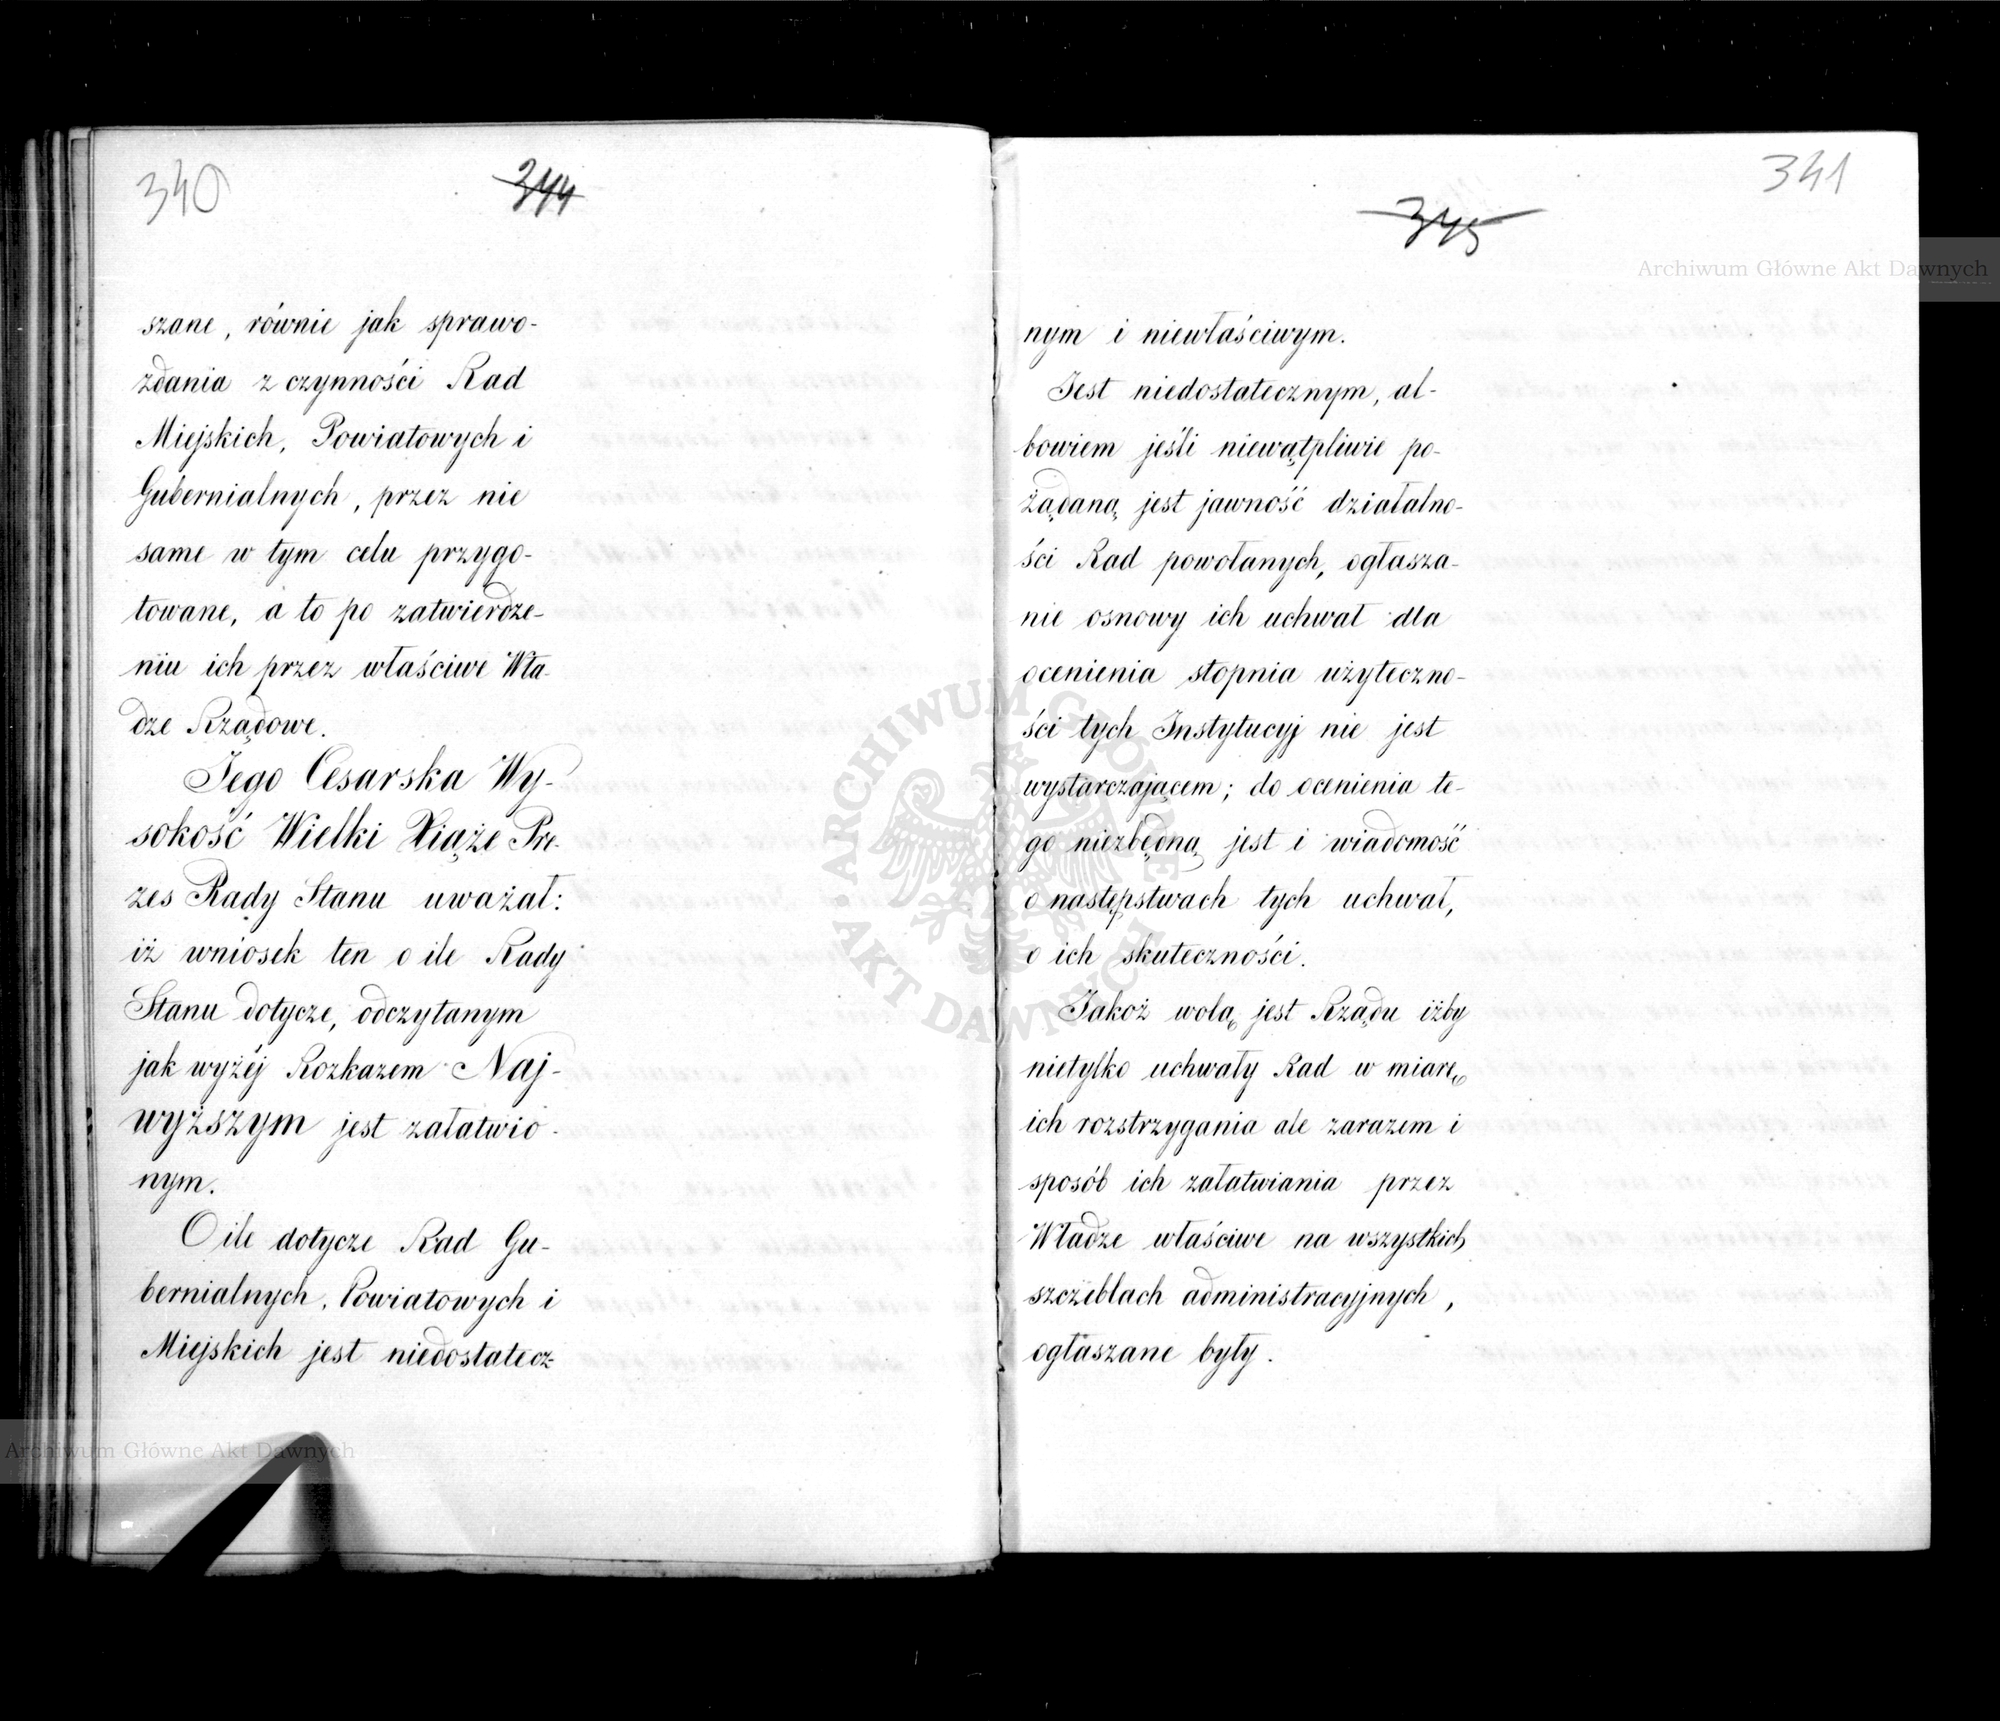 340
344
szane, równie jak sprawo-
zdania z czynności Rad
Miejskich, Powiatowych i
Gubernialnych, przez nie
same w tym celu przygo-
towane, a to po zatwierdze-
niu ich przez właściwe Wła-
dze Rządowe.
Jego Cesarska Wy-
sokość Wielki Xiąże Pre-
zes Rady Stanu uważał:
iż wniosek ten o ile Rady
Stanu dotycze, odczytanym
jak wyżéj Rozkazem Naj-
wyższym jest załatwio-
nym.
O ile dotycze Rad Gu-
bernialnych, Powiatowych i
Miejskich jest niedostatecz-
341
345
Archiwum Główne Akt Dawnych
nym i niewłaściwym.
Jest niedostatecznym, al-
bowiem jeśli niewątpliwie po-
żądaną jest jawność działalno-
ści Rad powołanych, ogłasza-
nie osnowy ich uchwał dla
ocenienia stopnia użyteczno-
ści tych Instytucyj nie jest
wystarczającem; do ocenienia te-
go niezbędną jest i wiadomość
o następstwach tych uchwał,
o ich skuteczności.
Jakoż wolą jest Rządu iżby
nietylko uchwały Rad w miarę
ich rozstrzygania ale zarazem i
sposób ich załatwiania przez
Władze właściwe na wszystkich
szczeblach administracyjnych,
ogłaszane były.
ARCHIWUM GŁÓWNE AKT DAWNYCH
Archiwum Główne Akt Dawnych